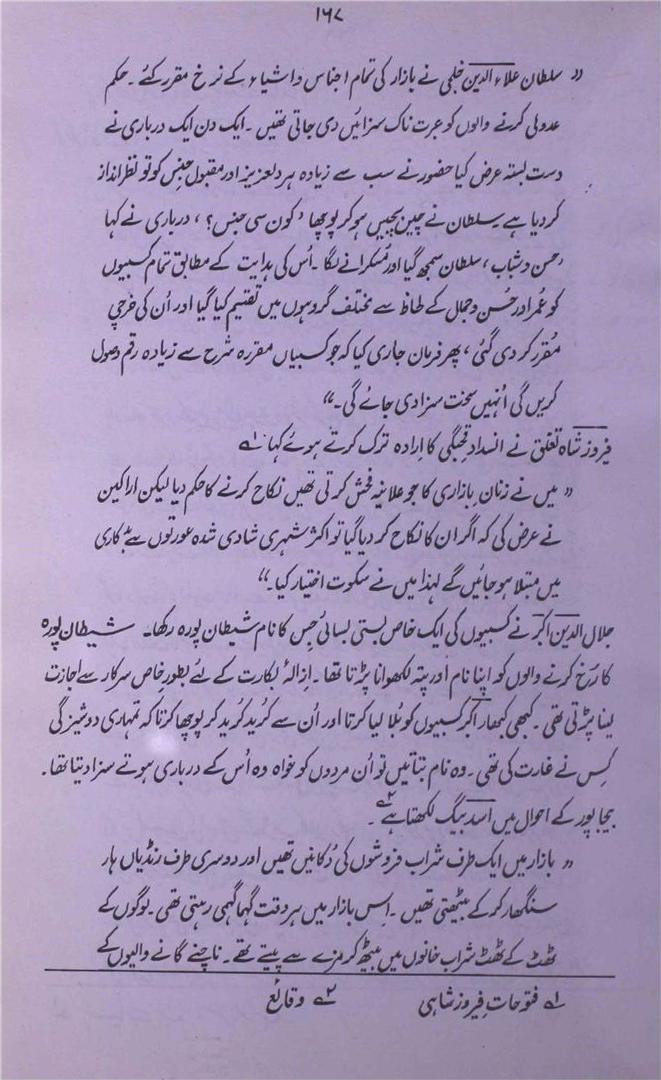 ۱۶۷
” سلطان علاء الدین خلجی نے بازار کی تمام اجناس و اشیاء کے نرخ مقرر کئے ۔ حکم
عدولی کرنے والوں کو عبرت ناک سزائیں دی جاتی تھیں ۔ ایک دن ایک درباری نے
دست بستہ عرض کیا حضور نے سب سے زیادہ ہر دلعزیز اور مقبول جنس کو تو نظر انداز
کر دیا ہے ۔ سلطان نے چیں بجبیں ہو کر پوچھا ’ کون سی جنس ؟ ، درباری نے کہا
’حسن و شباب ، سلطان سمجھ گیا اور مُسکرانے لگا ۔ اُس کی ہدایت کے مطابق تمام کسبیوں
کو عُمر اور حُسن و جمال کے لحاظ سے مختلف گروہوں میں تقسیم کیا گیا اور اُن کی خرچی
مُقرر کر دی گئی ، پھر فرمان جاری کیا کہ جو کسبیاں مقررہ شرح سے زیادہ رقم وصول
کریں گی اُنہیں سخت سزا دی جائے گی ۔“
فیروز شاہ تغلق نے انسداد قحبگی کا اِرادہ ترک کرتے ہوئے کہا ۱ے
” میں نے زنان بازاری کا جو علانیہ فحش کرتی تھیں نکاح کرنے کا حکم دیا لیکن اراکین
نے عرض کی کہ اگر ان کا نکاح کر دیا گیا تو اکثر شہری شادی شدہ عورتوں سے بدکاری
میں مبتلا ہو جائیں گے لہٰذا میں نے سکوت اختیار کیا ۔“
جلال الدین اکبر نے کسبیوں کی ایک خاص بستی بسائی جس کا نام شیطان پورہ رکھا ۔ شیطان پورہ
کا رُخ کرنے والوں کو اپنا نام اور پتہ لکھوانا پڑتا تھا ۔ اِزالۂ بکارت کے لئے بطور خاص سرکار سے اجازت
لینا پڑتی تھی ۔ کبھی کبھار اکبر کسبیوں کو بُلا لیا کرتا اور اُن سے کُرید کُرید کر پوچھا کرتا کہ تمہاری دوشیزگی
کِس نے غارت کی تھی ۔ وہ نام بتاتیں تو اُن مردوں کو خواہ وہ اُس کے درباری ہوتے سزا دیتا تھا ۔
بیجاپور کے احوال میں اسد بیگ لکھتا ہے ۲ے ۔
” بازار میں ایک طرف شراب فروشوں کی دُکانیں تھیں اور دوسری طرف رنڈیاں ہار
سنگھار کر کے بیٹھتی تھیں ۔ اِس بازار میں ہر وقت گہما گہمی رہتی تھی ۔ لوگوں کے
ٹھٹ کے ٹھٹ شراب خانوں میں بیٹھ کر مزے سے پیتے تھے ۔ ناچنے گانے والیوں کے
۱ے فتوحاتِ فیروز شاہی ۲ے وقائع